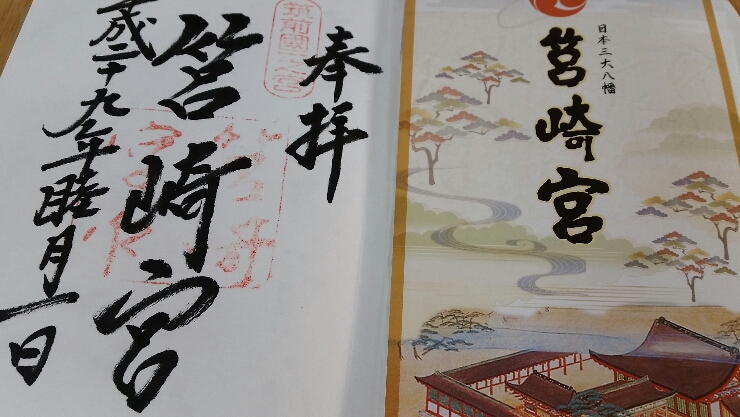 奉拝
筑前國一之宮
筥崎宮
平成二十九年睦月一日
日本三大八幡
筥崎宮